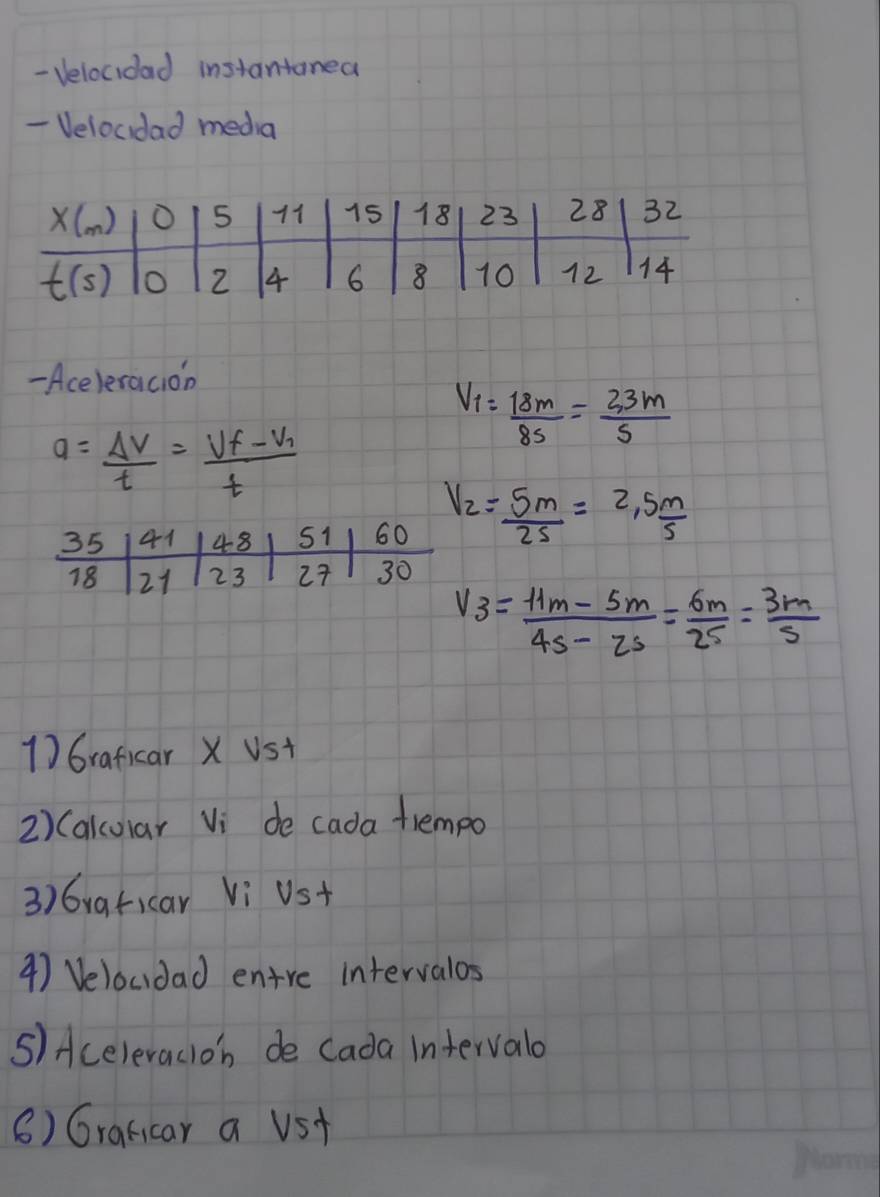 -Velocidad instantanea
-Velocidad media
X(m) | 0 | 5 | 11 | 15 | 18 | 23 | 28 | 32
t(s) | 0 | 2 | 4 | 6 | 8 | 10 | 12 | 14
-Aceleración
a = ΔV/t = Vf-V1/t
35 | 41 | 48 | 51 | 60
18 | 21 | 23 | 27 | 30
V1 = 18m/8s = 2,3m/s
V2 = 5m/2s = 2,5 m/s
V3 = 11m - 5m/4s - 2s = 6m/2s = 3m/s
1) Graficar X Vst
2) Calcular Vi de cada tiempo
3) Graficar Vi Vst
4) Velocidad entre intervalos
5) Aceleración de cada intervalo
6) Graficar a Vst